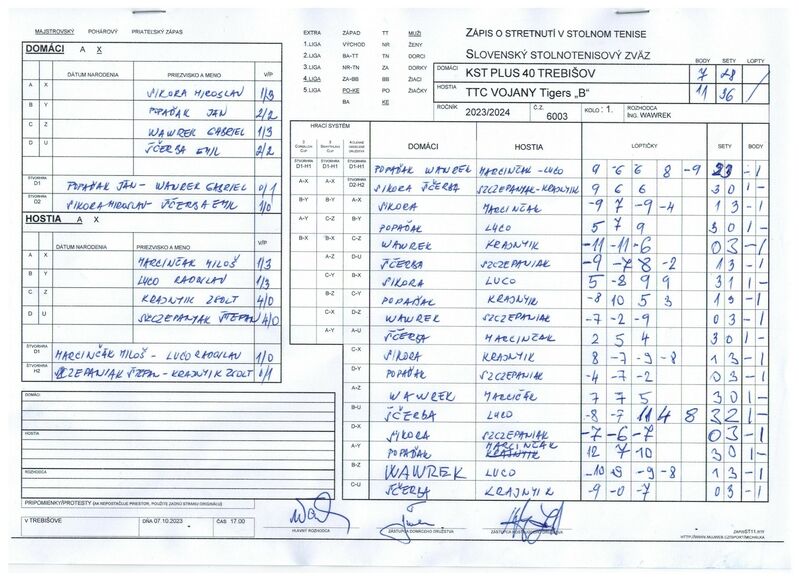 MAJSTROVSKÝ POHÁROVÝ PRIATEĽSKÝ ZÁPAS
DOMÁCI A X
DÁTUM NARODENIA PRIEZVISKO A MENO V/P
A X SIKORA MIROSLAV 1/3
B Y POPAĎAK JÁN 2/2
C Z WAWREK GABRIEL 1/3
D U ŠČERBA EMIL 2/2
ŠTVORHRA D1 POPAĎAK JÁN - WAWREK GABRIEL 0/1
ŠTVORHRA D2 SIKORA MIROSLAV - ŠČERBA EMIL 1/0
HOSTIA A X
DÁTUM NARODENIA PRIEZVISKO A MENO V/P
A X MARCINČAK MILOŠ 1/3
B Y LUCO RADOSLAV 1/3
C Z KRAJNYIK ZSOLT 4/0
D U SZCZEPANIAK ŠTEPAN 4/0
ŠTVORHRA D1 MARCINČAK MILOŠ - LUCO RADOSLAV 1/0
ŠTVORHRA H2 SZCZEPANIAK ŠTEPAN - KRAJNYIK ZSOLT 0/1
DOMÁCI:
HOSTIA:
ROZHODCA
PRIPOMIENKY/PROTESTY (AK NEPOSTAČUJE PRIESTOR, POUŽITE ZADNÚ STRANU ORIGINÁLU)
V TREBIŠOVE DŇA 07.10.2023 ČAS 17.00
EXTRA ZÁPAD TT MUŽI
1.LIGA VÝCHOD NR ŽENY
2.LIGA BA-TT TN DORCI
3.LIGA NR-TN ZA DORKY
4.LIGA ZA-BB BB ŽIACI
5.LIGA PO-KE PO ŽIAČKY
BA KE
ZÁPIS O STRETNUTÍ V STOLNOM TENISE
SLOVENSKÝ STOLNOTENISOVÝ ZVÄZ
BODY SETY LOPTY
DOMÁCI KST PLUS 40 TREBIŠOV 7 28
HOSTIA TTC VOJANY Tigers „B" 11 36
ROČNÍK 2023/2024 Č.Z. 6003 KOLO : 1. ROZHODCA ING. WAWREK
HRACÍ SYSTÉM DOMÁCI HOSTIA LOPTIČKY SETY BODY
D1-H1 D1-H1 D1-H1 POPAĎAK WAWREK MARCINČAK - LUCO 9 -6 6 8 -9 23 -1
A-X A-X D2-H2 SIKORA ŠČERBA SZCZEPANIAK-KRAJNYIK 9 6 6 3 0 1-
B-Y B-Y A-X SIKORA MARCINČAK -9 7 -9 -4 1 3 -1
A-Y C-Z B-Y POPAĎAK LUCO 5 7 9 3 0 1-
B-X B-X C-Z WAWREK KRAJNYIK -11 -11 -6 0 3 -1
A-Z D-U ŠČERBA SZCZEPANIAK -9 -7 8 -2 1 3 -1
C-Y B-X SIKORA LUCO 5 -8 9 9 3 1 1-
B-Z C-Y POPAĎAK KRAJNYIK -8 10 5 3 1 3 -1
C-X D-Z WAWREK SZCZEPANIAK -7 -2 -9 0 3 -1
A-Y A-U ŠČERBA MARCINČAK 2 5 4 3 0 1-
C-X SIKORA KRAJNYIK 8 -7 -9 -8 1 3 -1
D-Y POPAĎAK SZCZEPANIAK -4 -7 -2 0 3 -1
A-Z WAWREK MARCIČÁK 7 7 5 3 0 1-
B-U ŠČERBA LUCO -8 -7 11 4 8 3 2 1-
D-X SIKORA SZCZEPANIAK -7 -6 -7 0 3 -1
A-Y POPAĎAK MARCINČAK 12 7 10 3 0 1-
B-Z WAWREK LUCO -10 9 -9 -8 1 3 -1
C-U ŠČERBA KRAJNYIK -9 -0 -7 0 3 -1
HLAVNÝ ROZHODCA ZÁSTUPCA DOMÁCEHO DRUŽSTVA
ZAPISST11.RTF